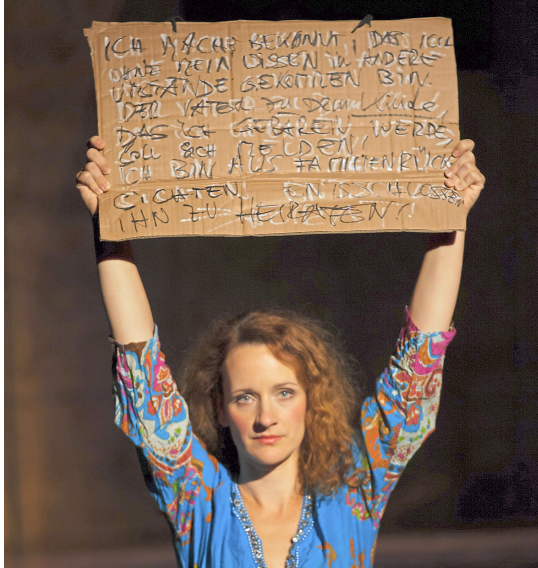 ICH MACHE BEKANNT, DAS ICH
OHNE MEIN WISSEN IN ANDERE
UMSTÄNDE GEKOMMEN BIN.
DER VATER ZU DEM KINDE,
DAS ICH GEBÄREN WERDE,
SOLL SICH MELDEN!
ICH BIN AUS FAMILIENRÜCK
SICHTEN, ENTSCHLOSSEN
IHN ZU HEIRATEN!